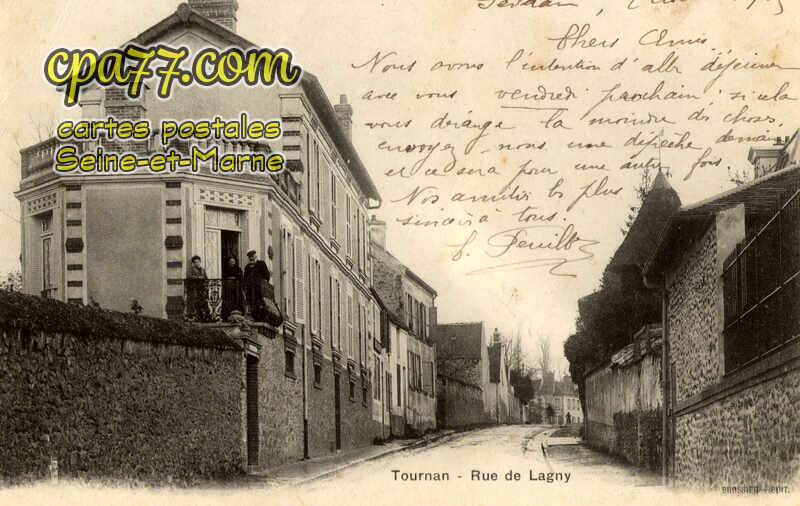 Chers Amis
Nous avons l'intention d'aller déjeuner
avec vous vendredi prochain; si cela
vous dérange la moindre des choses,
envoyez-nous une dépêche demain
et ce sera pour une autre fois
Nos amitiés les plus
sincères à tous.
cpa77.com
cartes postales
Seine-et-Marne
Tournan - Rue de Lagny
EDIT.